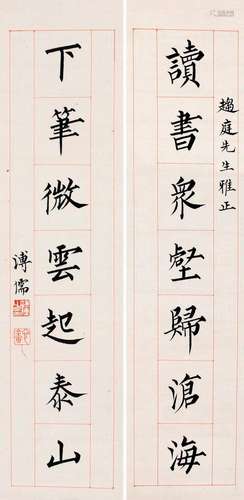 趨庭先生雅正
讀書衆壑歸滄海
下筆微雲起泰山
溥儒